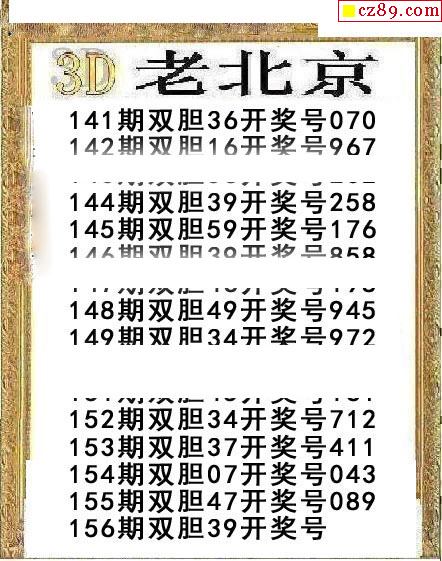 cz89.com
3D 老北京
141期双胆36开奖号070
142期双胆16开奖号967
144期双胆39开奖号258
145期双胆59开奖号176
146期双胆39开奖号858
148期双胆49开奖号945
149期双胆34开奖号972
152期双胆34开奖号712
153期双胆37开奖号411
154期双胆07开奖号043
155期双胆47开奖号089
156期双胆39开奖号